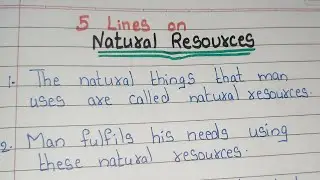 5 Lines on
Natural Resources
1. The natural things that man
uses are called natural resources.
2. Man fulfils his needs using
these natural resources.